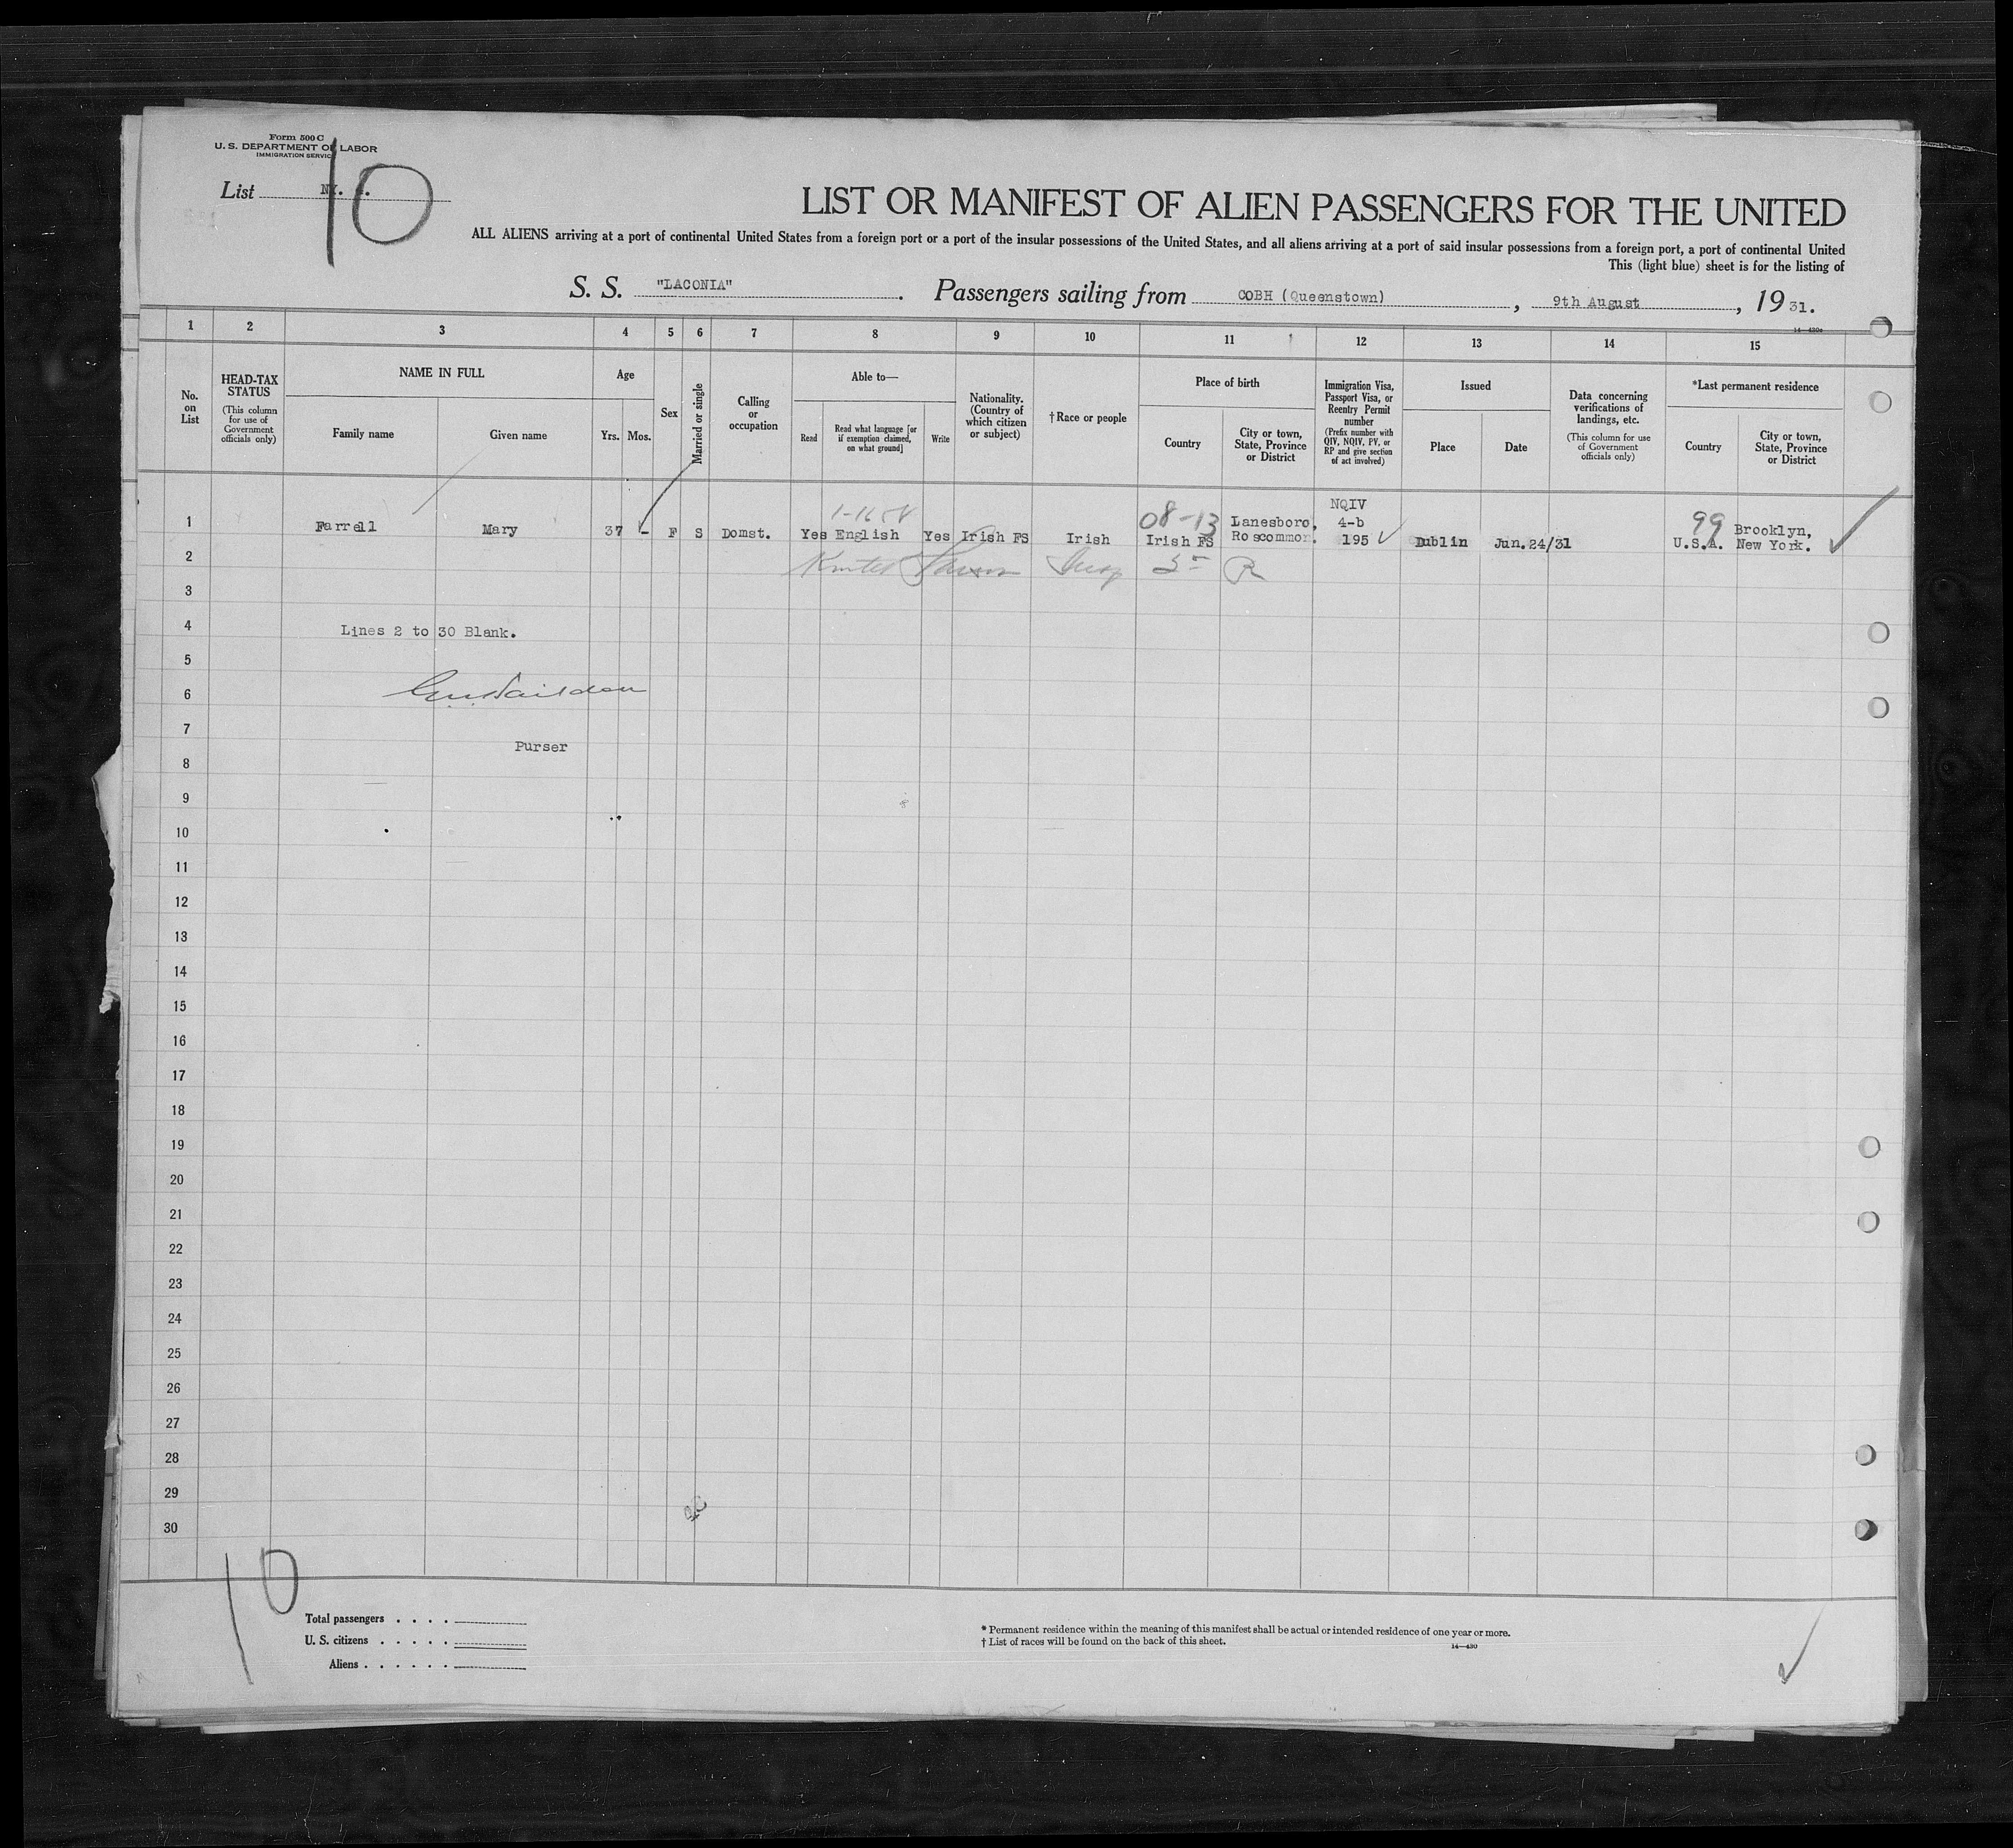 Form 500 C
U. S. DEPARTMENT OF LABOR
IMMIGRATION SERVICE
List NY.
10
LIST OR MANIFEST OF ALIEN PASSENGERS FOR THE UNITED
ALL ALIENS arriving at a port of continental United States from a foreign port or a port of the insular possessions of the United States, and all aliens arriving at a port of said insular possessions from a foreign port, a port of continental United
This (light blue) sheet is for the listing of
S. S. "LACONIA". Passengers sailing from COBH (Queenstown), 9th August, 1931.
14—430c
1 2 3 4 5 6 7 8 9 10 11 12 13 14 15
No. on List
HEAD-TAX STATUS
(This column for use of Government officials only)
NAME IN FULL
Family name
Given name
Age
Yrs. Mos.
Sex
Married or single
Calling or occupation
Able to—
Read
Read what language [or if exemption claimed, on what ground]
Write
Nationality. (Country of which citizen or subject)
†Race or people
Place of birth
Country
City or town, State, Province or District
Immigration Visa, Passport Visa, or Reentry Permit number
(Prefix number with QIV, NQIV, PV, or RP and give section of act involved)
Issued
Place
Date
Data concerning verifications of landings, etc.
(This column for use of Government officials only)
*Last permanent residence
Country
City or town, State, Province or District
1 Farrell Mary 37 - F S Domst. Yes English Yes Irish FS Irish 08-13 Irish FS Lanesboro, Roscommon. NQIV 4-b 195 Dublin Jun.24/31 99 U.S.A. Brooklyn, New York.
2
3
4 Lines 2 to 30 Blank.
5
6
7
Purser
8
9
10
11
12
13
14
15
16
17
18
19
20
21
22
23
24
25
26
27
28
29
30
10
Total passengers . . . .
U. S. citizens . . . . .
Aliens . . . . . .
* Permanent residence within the meaning of this manifest shall be actual or intended residence of one year or more.
† List of races will be found on the back of this sheet.
14—430